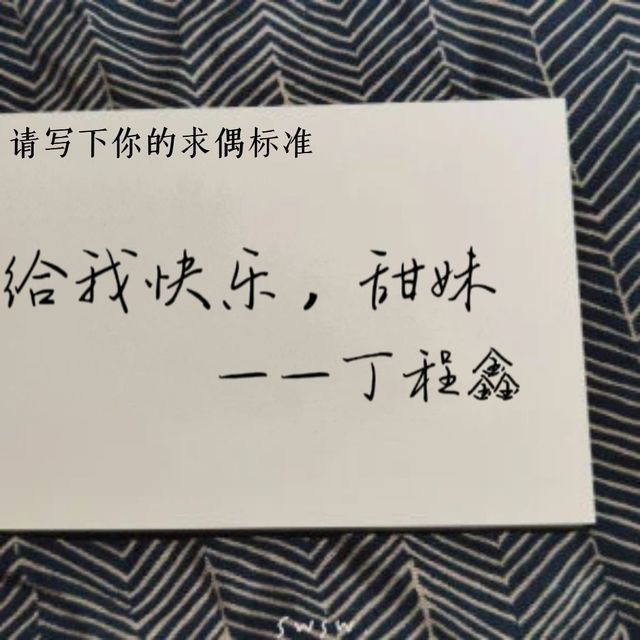 请写下你的求偶标准
给我快乐，甜妹
——丁程鑫
swsw.